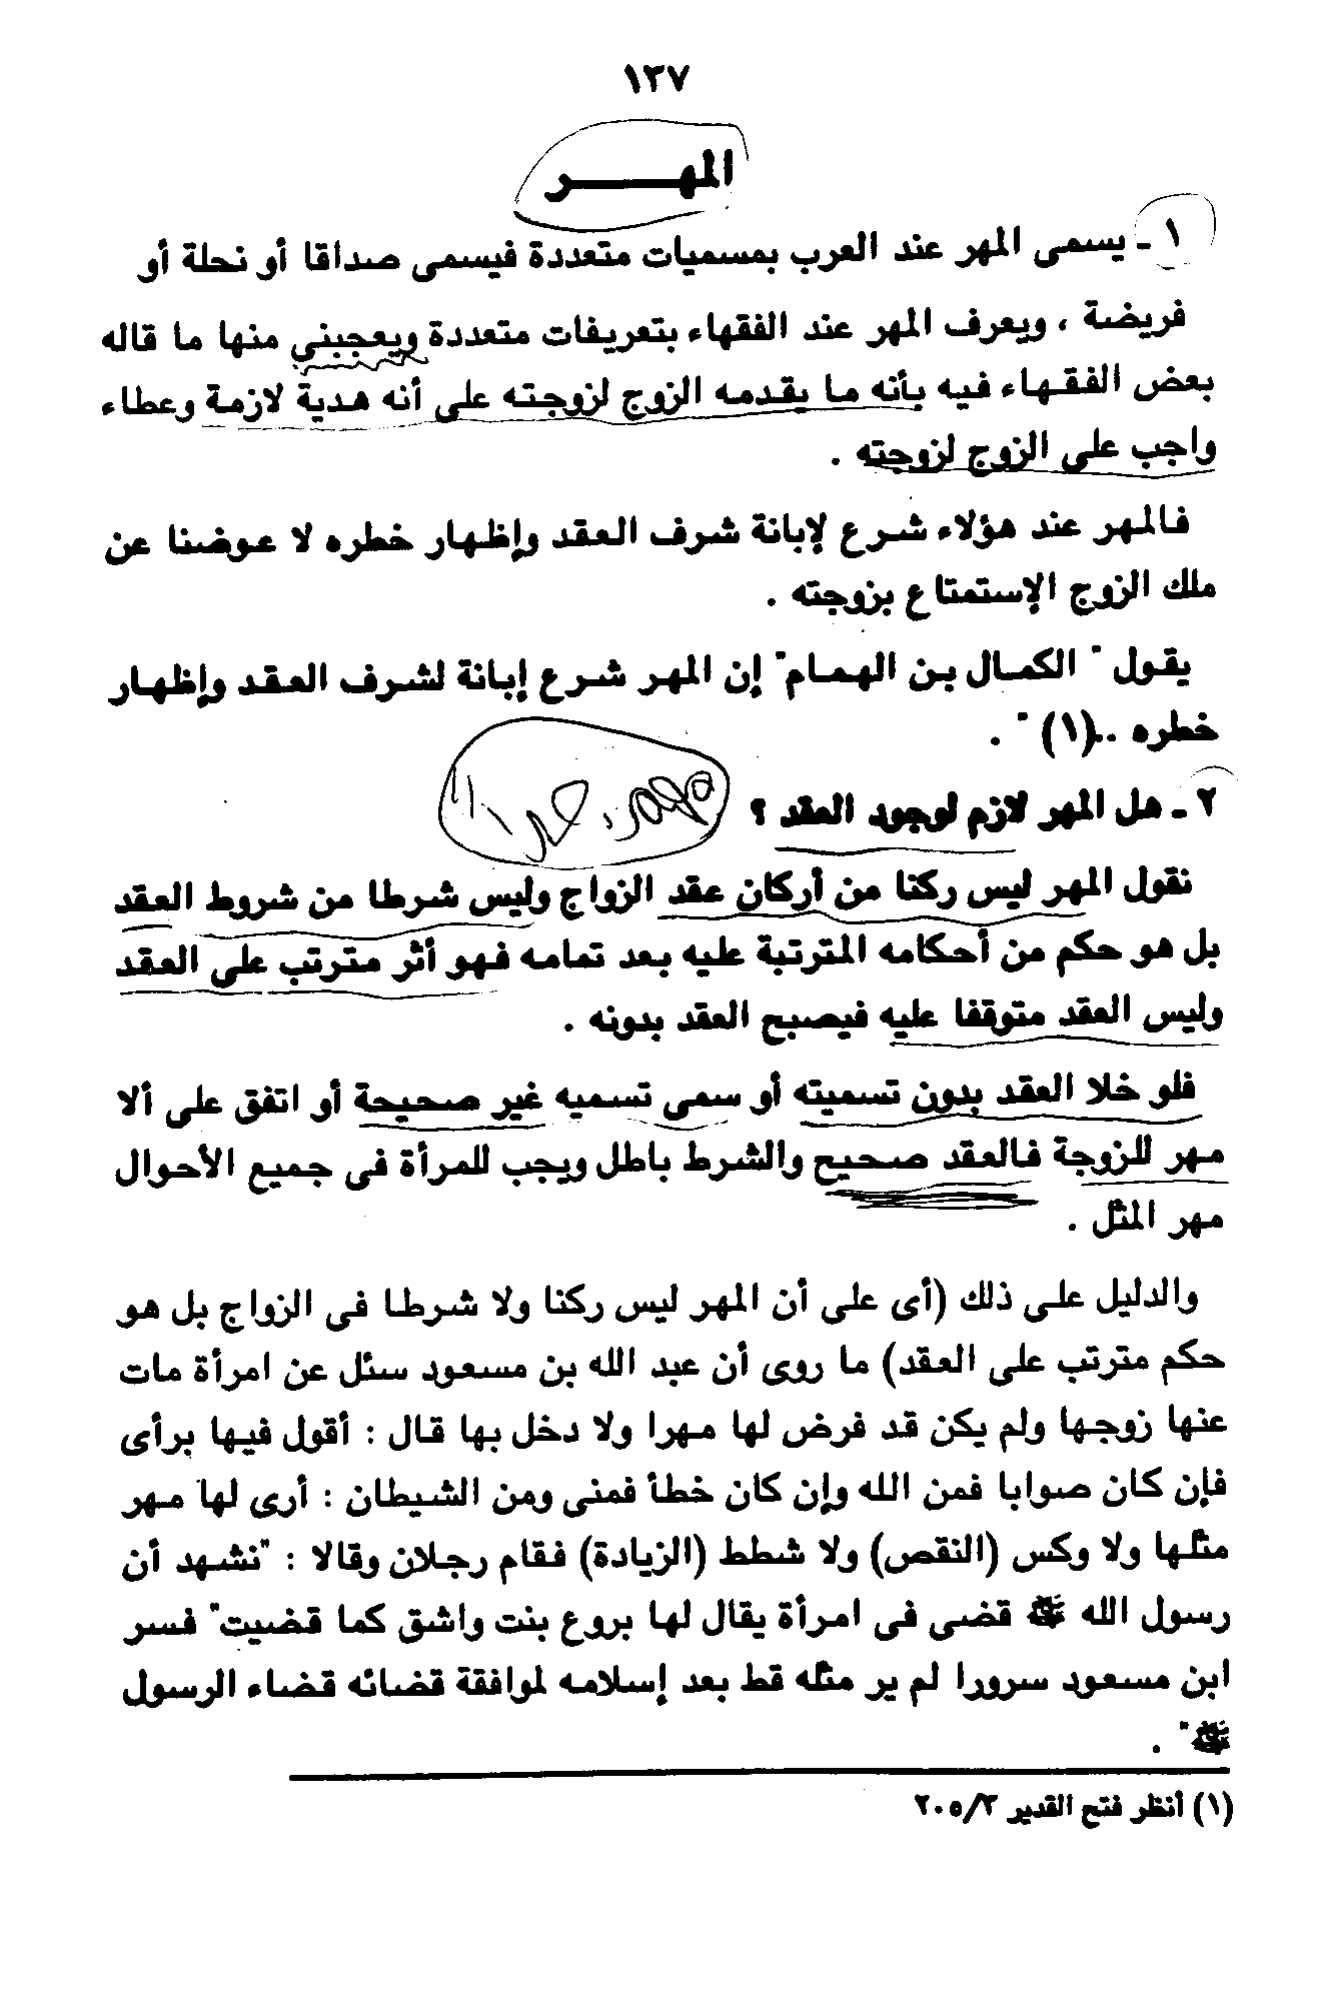 ١٣٧
المهـــــر
١ ـ يسمى المهر عند العرب بمسميات متعددة فيسمى صداقا أو نحلة أو
فريضة ، ويعرف المهر عند الفقهاء بتعريفات متعددة ويعجبني منها ما قاله
بعض الفقهاء فيه بأنه ما يقدمه الزوج لزوجته على أنه هدية لازمة وعطاء
واجب على الزوج لزوجته .
فالمهر عند هؤلاء شرع لإبانة شرف العقد وإظهار خطره لا عوضنا عن
ملك الزوج الإستمتاع بزوجته .
يقول " الكمال بن الهمام" إن المهر شرع إبانة لشرف العقد وإظهار
خطره ..(١) " .
٢ ـ هل المهر لازم لوجود العقد ؟ مهم جداً
نقول المهر ليس ركنا من أركان عقد الزواج وليس شرطا من شروط العقد
بل هو حكم من أحكامه المترتبة عليه بعد تمامه فهو أثر مترتب على العقد
وليس العقد متوقفا عليه فيصبح العقد بدونه .
فلو خلا العقد بدون تسميته أو سمى تسميه غير صحيحة أو اتفق على ألا
مهر للزوجة فالعقد صحيح والشرط باطل ويجب للمرأة فى جميع الأحوال
مهر المثل .
والدليل على ذلك (أى على أن المهر ليس ركنا ولا شرطا فى الزواج بل هو
حكم مترتب على العقد) ما روى أن عبد الله بن مسعود سئل عن امرأة مات
عنها زوجها ولم يكن قد فرض لها مهرا ولا دخل بها قال : أقول فيها برأى
فإن كان صوابا فمن الله وإن كان خطأ فمنى ومن الشيطان : أرى لها مهر
مثلها ولا وكس (النقص) ولا شطط (الزيادة) فقام رجلان وقالا : "نشهد أن
رسول الله ﷺ قضى فى امرأة يقال لها بروع بنت واشق كما قضيت" فسر
ابن مسعود سرورا لم ير مثله قط بعد إسلامه لموافقة قضائه قضاء الرسول
ﷺ" .
(١) أنظر فتح القدير ٢٠٥/٣